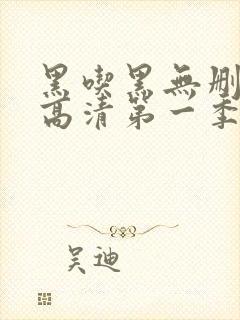 黑喫黑無刪
高清第一季
吴迪